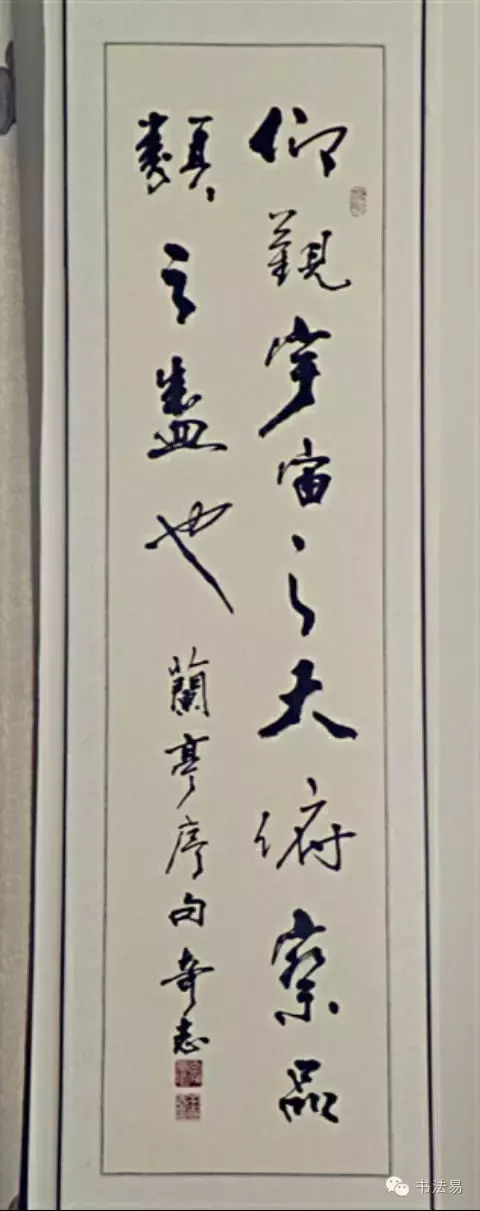 仰觀宇宙之大俯察品
類之盛也 蘭亭序句 奇志
书法易